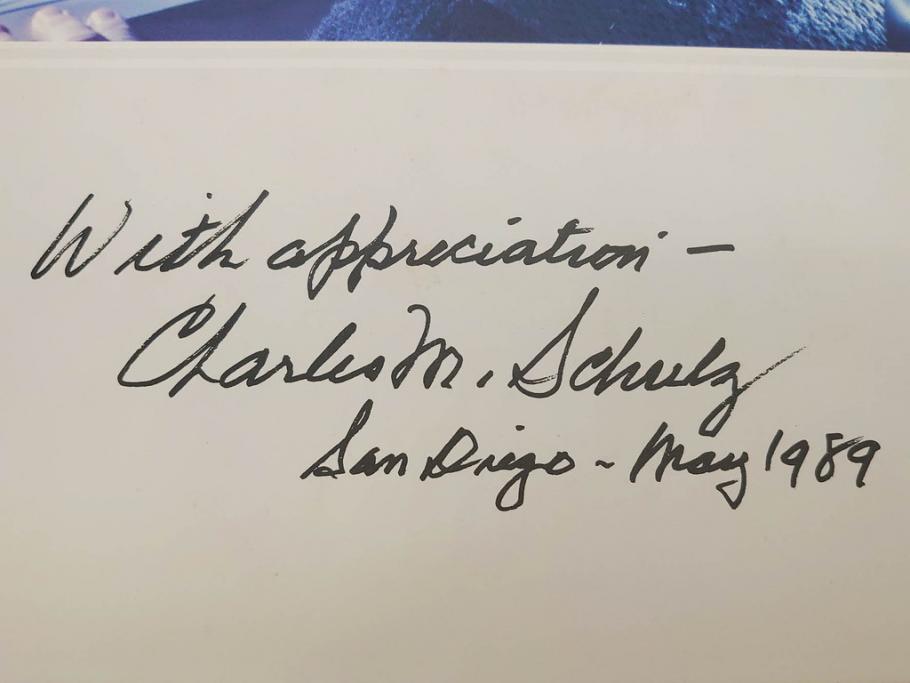 With appreciation —
Charles M. Schulz
San Diego - May 1989